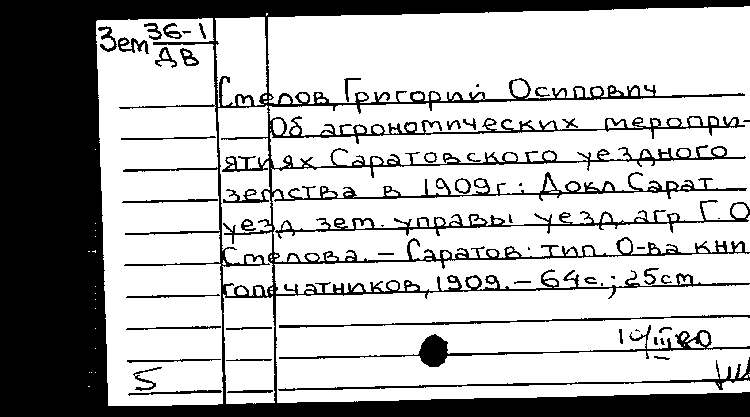 Зем 36-1
ДВ
Стелов, Григорий Осипович
Об агрономических меропри-
ятиях Саратовского уездного
земства в 1909г.: Докл. Сарат.
уезд. зем. управы уезд. агр. Г.О.
Стелова. – Саратов: тип. О-ва кни-
гопечатников, 1909. – 64с.; 25см.
10/III 80
5